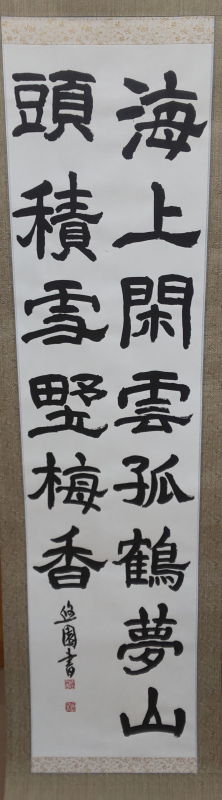 海上閑雲孤鶴夢山
頭積雪野梅香
悠園書